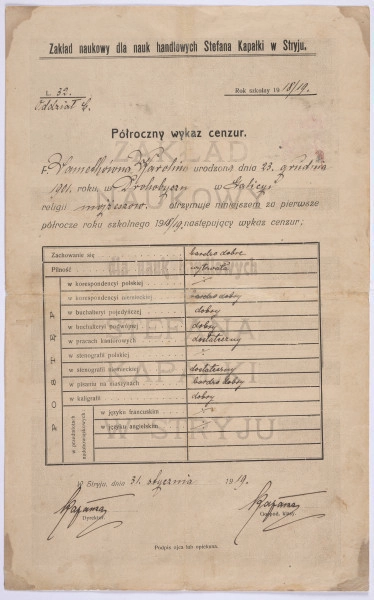 Zakład naukowy dla nauk handlowych Stefana Kapałki w Stryju.
L. 32.
Oddział b.
Rok szkolny 1918/19.
Półroczny wykaz cenzur.
Karolina urodzona dnia 23. grudnia
1901. roku, w Drohobyczu w Galicyi
religii mojżeszow. otrzymuje niniejszem za pierwsze
półrocze roku szkolnego 1918/19 następujący wykaz cenzur:
Zachowanie się bardzo dobre
Pilność wytrwała
POSTĘP
w korespondencyi polskiej
w korespondencyi niemieckiej bardzo dobry
w buchalteryi pojedyńczej dobry
w buchalteryi podwójnej dobry
w pracach kantorowych dostateczny
w stenografii polskiej
w stenografii niemieckiej dostateczny
w pisaniu na maszynach bardzo dobry
w kaligrafii dobry
w przedmiotach nadobowiązkowych
w języku francuskim
w języku angielskim
W Stryju, dnia 31. stycznia 1919.
Kapałka
Dyrektor.
Kapałka
Gospod. klasy.
Podpis ojca lub opiekuna.
ZAKŁAD
NAUKOWY
dla nauk handlowych
STEFANA
KAPAŁKI
W STRYJU